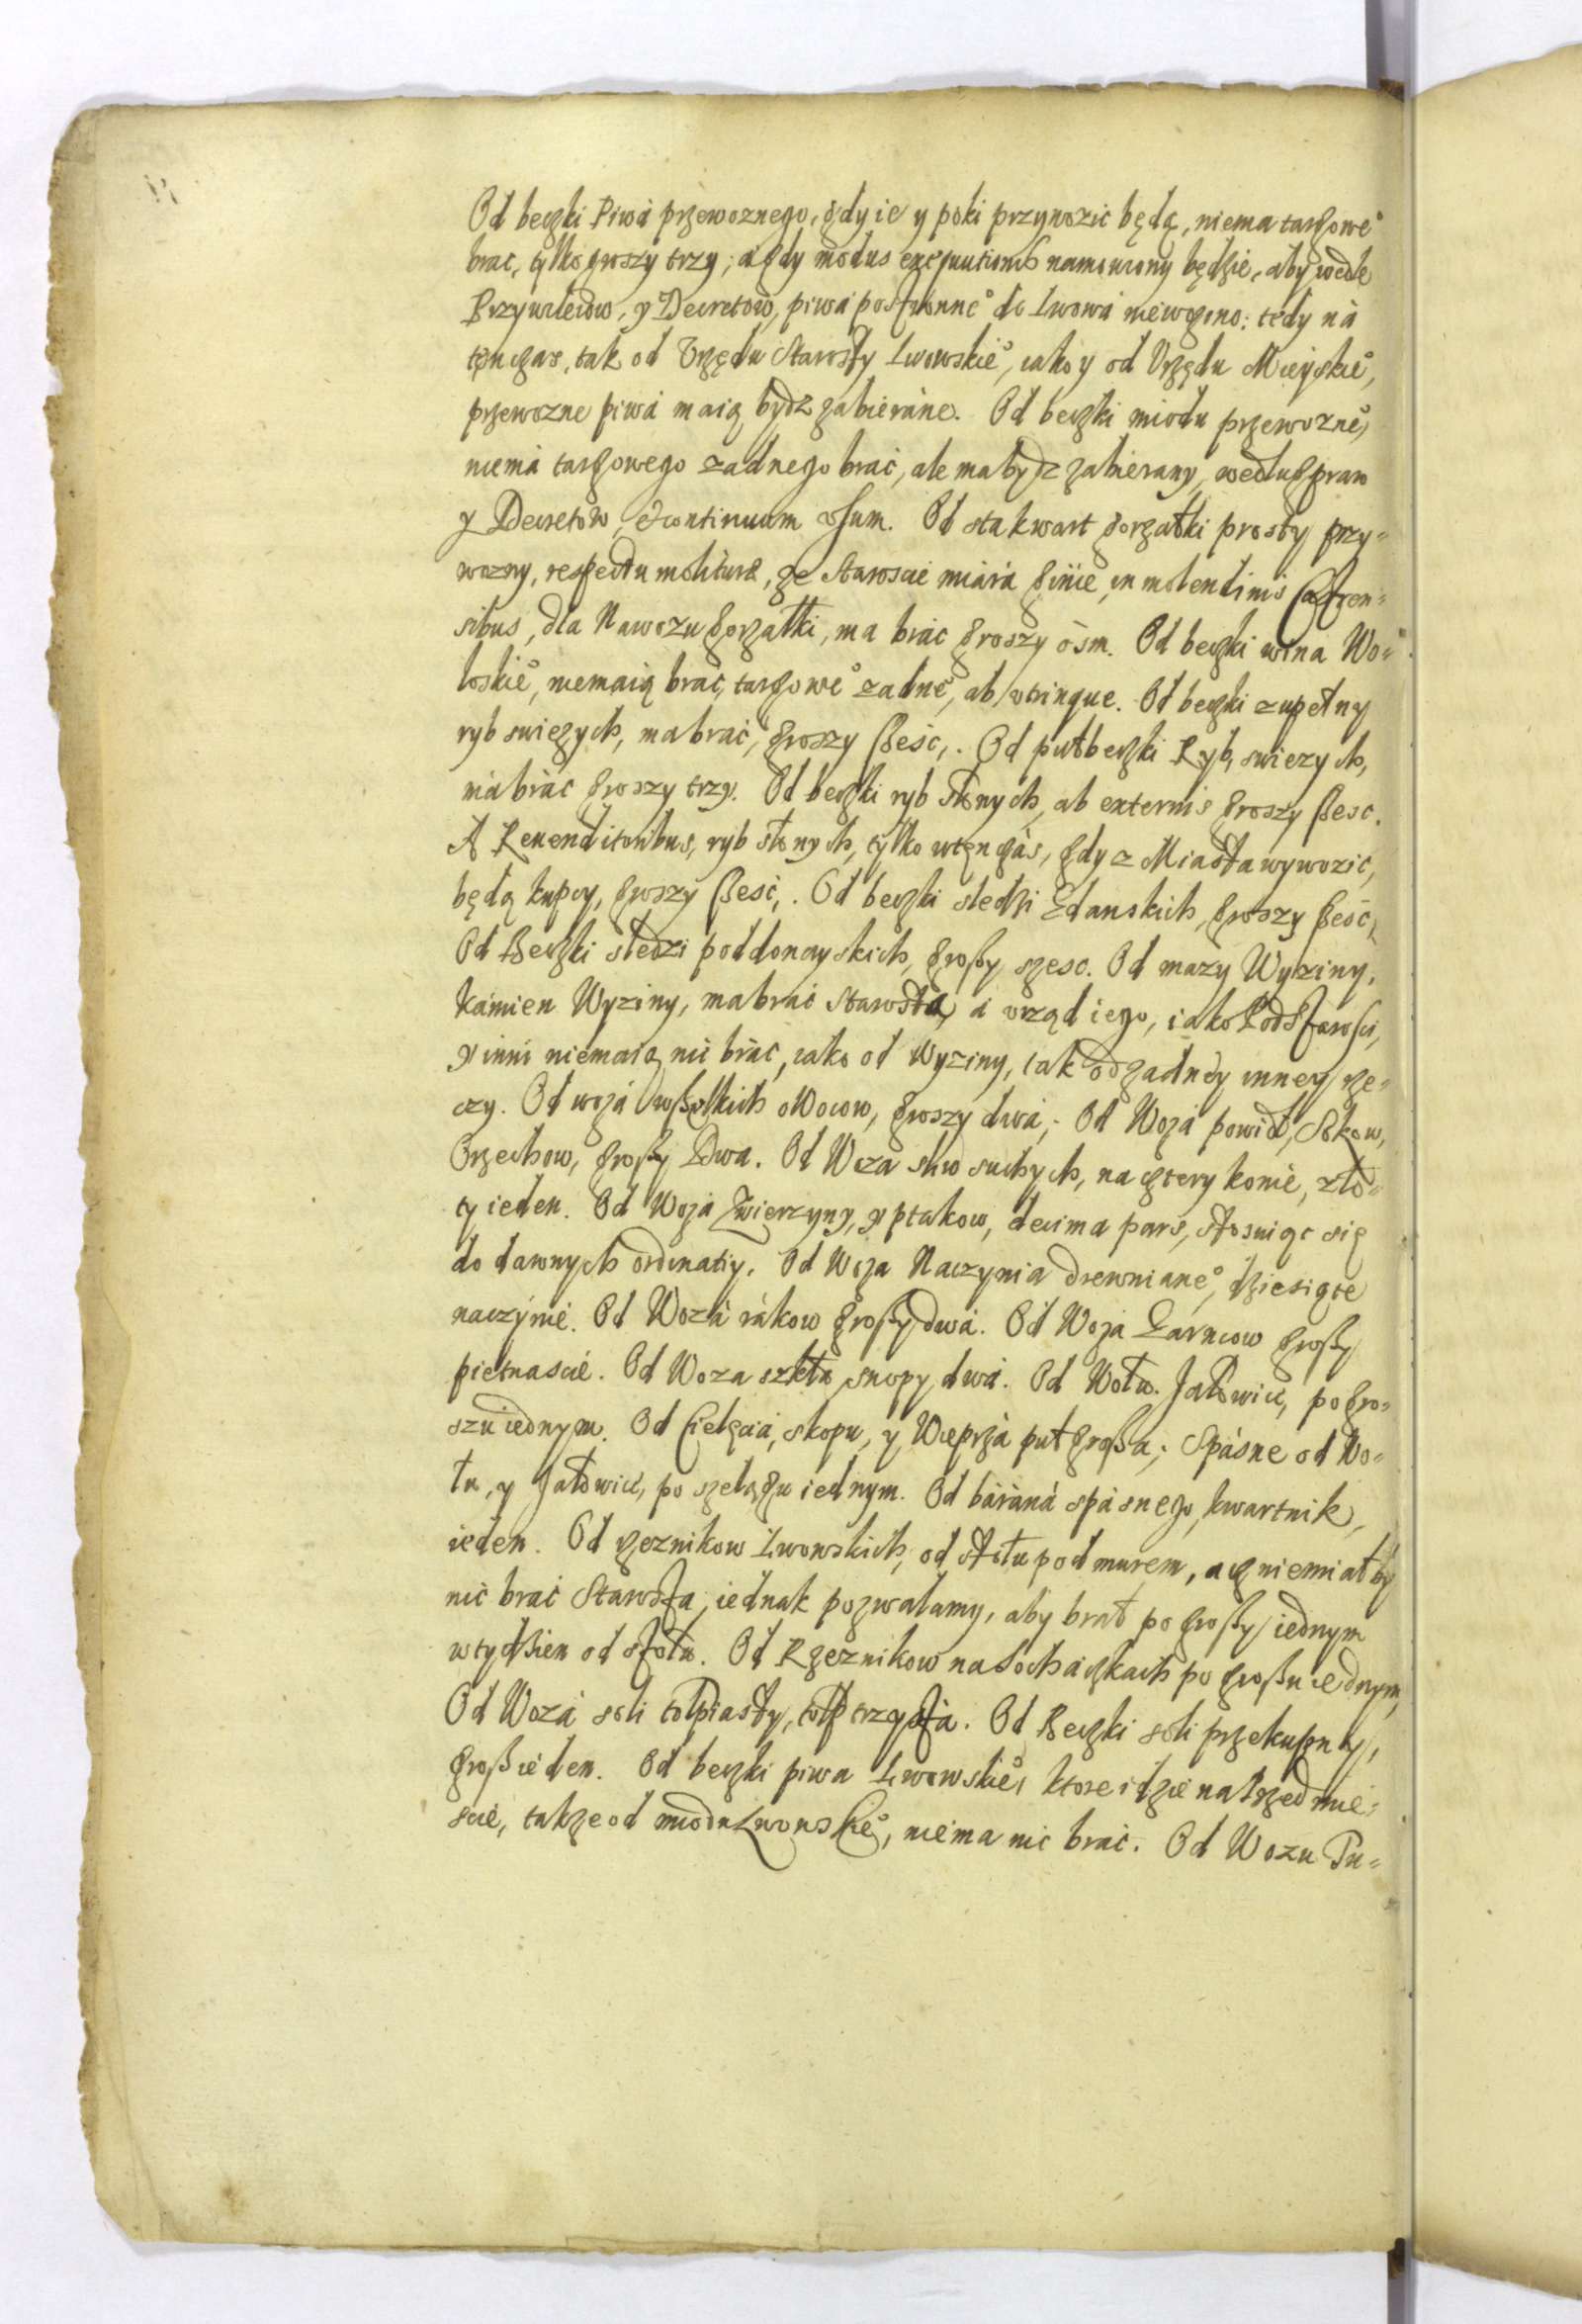 Od beczki Piwá przewoznego, gdy ie y poki przywozić będą, niema targoweº
brac, tylko groszy trzy; a gdy modus exequutionis namowiony będzie, aby wedle
Przywileiow, y Decretow, piwá postronneº do Lwowá niewozono: tedy ná
tęn czas, tak od Vrzędu Starosty Lwowskieº, iako y od Vrzędu Mieyskieº,
przewozne piwá maią bydz zabieráne. Od beczki miodu przewozneº,
niemá targowego zadnego brać, ale ma bydz zabierany, według praw
y Decretow, et continuum vsum. Od sta kwart gorzałki prosty przy-
wozny, respectu molituræ, ze Staroscie miárá ginie, in molendinis Castren-
sibus, dla Nawozu gorzałki, ma brác groszy ósm. Od beczki wina Wo-
łoskieº, niemaią brać, targoweº zadneº, ab vtrinque. Od beczki zupełny
ryb swiezych, ma brać, groszy sześć,. Od puł beczki Ryb, swiezych,
má bráć groszy trzy. Od beczki ryb słonych, ab externis groszy szesc.
A Reuenditoribus, ryb słonych, tylko wtęn czás, gdy z Miasta wywozić,
będą kupcy, groszy sześć,. Od beczki sledzi Gdanskich, groszy sześć,
Od Beczki sledzi poddonayskich, groszy szesc. Od mazy Wyziny,
kámien Wyziny, ma brać Starosta, á vrząd iego, iako Podstarości,
y inni niemaią nic bráć, iako od Wyziny, tak od zadnęy inney rze-
czy. Od wozá wszelkich owocow, groszy dwá; Od Wozá powideł, Sokow,
Orzechow, groszy Dwa. Od Woza sliw suchych, na cztery konie, zło-
ty ieden. Od Wozá Zwierzyny, y ptakow, decima pars, stosuiąc się
do dawnych ordinatiy. Od Woza Naczynia drewnianeº, dziesiąte
naczýnié. Od Wozá rákow groszy dwá. Od Wozá Garncow groszy
pietnascié. Od Woza szkła snopy dwá. Od Wołu. Jałowice, po gro-
szu iednym. Od Cielęciá, skopu, y Wieprzá puł grosza; Spásne od Wo-
łu, y Jałowice, po szelągu iednym. Od báráná spásnego, kwartnik,
ieden. Od rzeznikow Lwowskich, od stołu pod murem, acz niemiałby
nic brać Starosta, iednak pozwalamy, aby brał po groszy iednym
w tydzien od stołu. Od Rzeznikow na Sochaczkach po groszu iednym,
Od Wozá soli tołpiasty, tołp trzystá. Od Beczki soli przekupny,
grosz ieden. Od beczki piwa Lwowskieº, ktore idzie na Przedmie-
scié, takze od miodu Lwowskieº, niema nic brać. Od Wozu Pu-